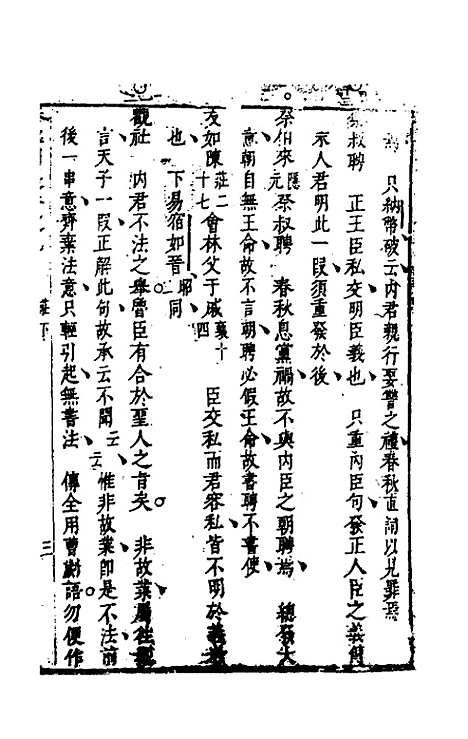 只納幣破云內君親行娶讐之禮春秋直詞以見罪焉
叔聘　正王臣私交明臣義也　只重內臣句發正人臣之義
示人君明此一段須重發於後
祭伯來隱元祭叔聘　春秋息黨禍故不與內臣之朝聘焉　總發大
意朝自無王命故不言朝聘必假王命故書聘不書使
友如陳莊二十七會林父于戚襄十四　臣交私而君容私皆不明於義
也　下易宿如晉昭同
觀社　內君不法之舉魯臣有合於聖人之旨矣　非故業屬往觀
言天子一段正解此句故承云不聞云云惟非故業即是不法前
後一串意齊棄法意只輕引起無書法　傳全用曹劌語勿便作
莊下　三